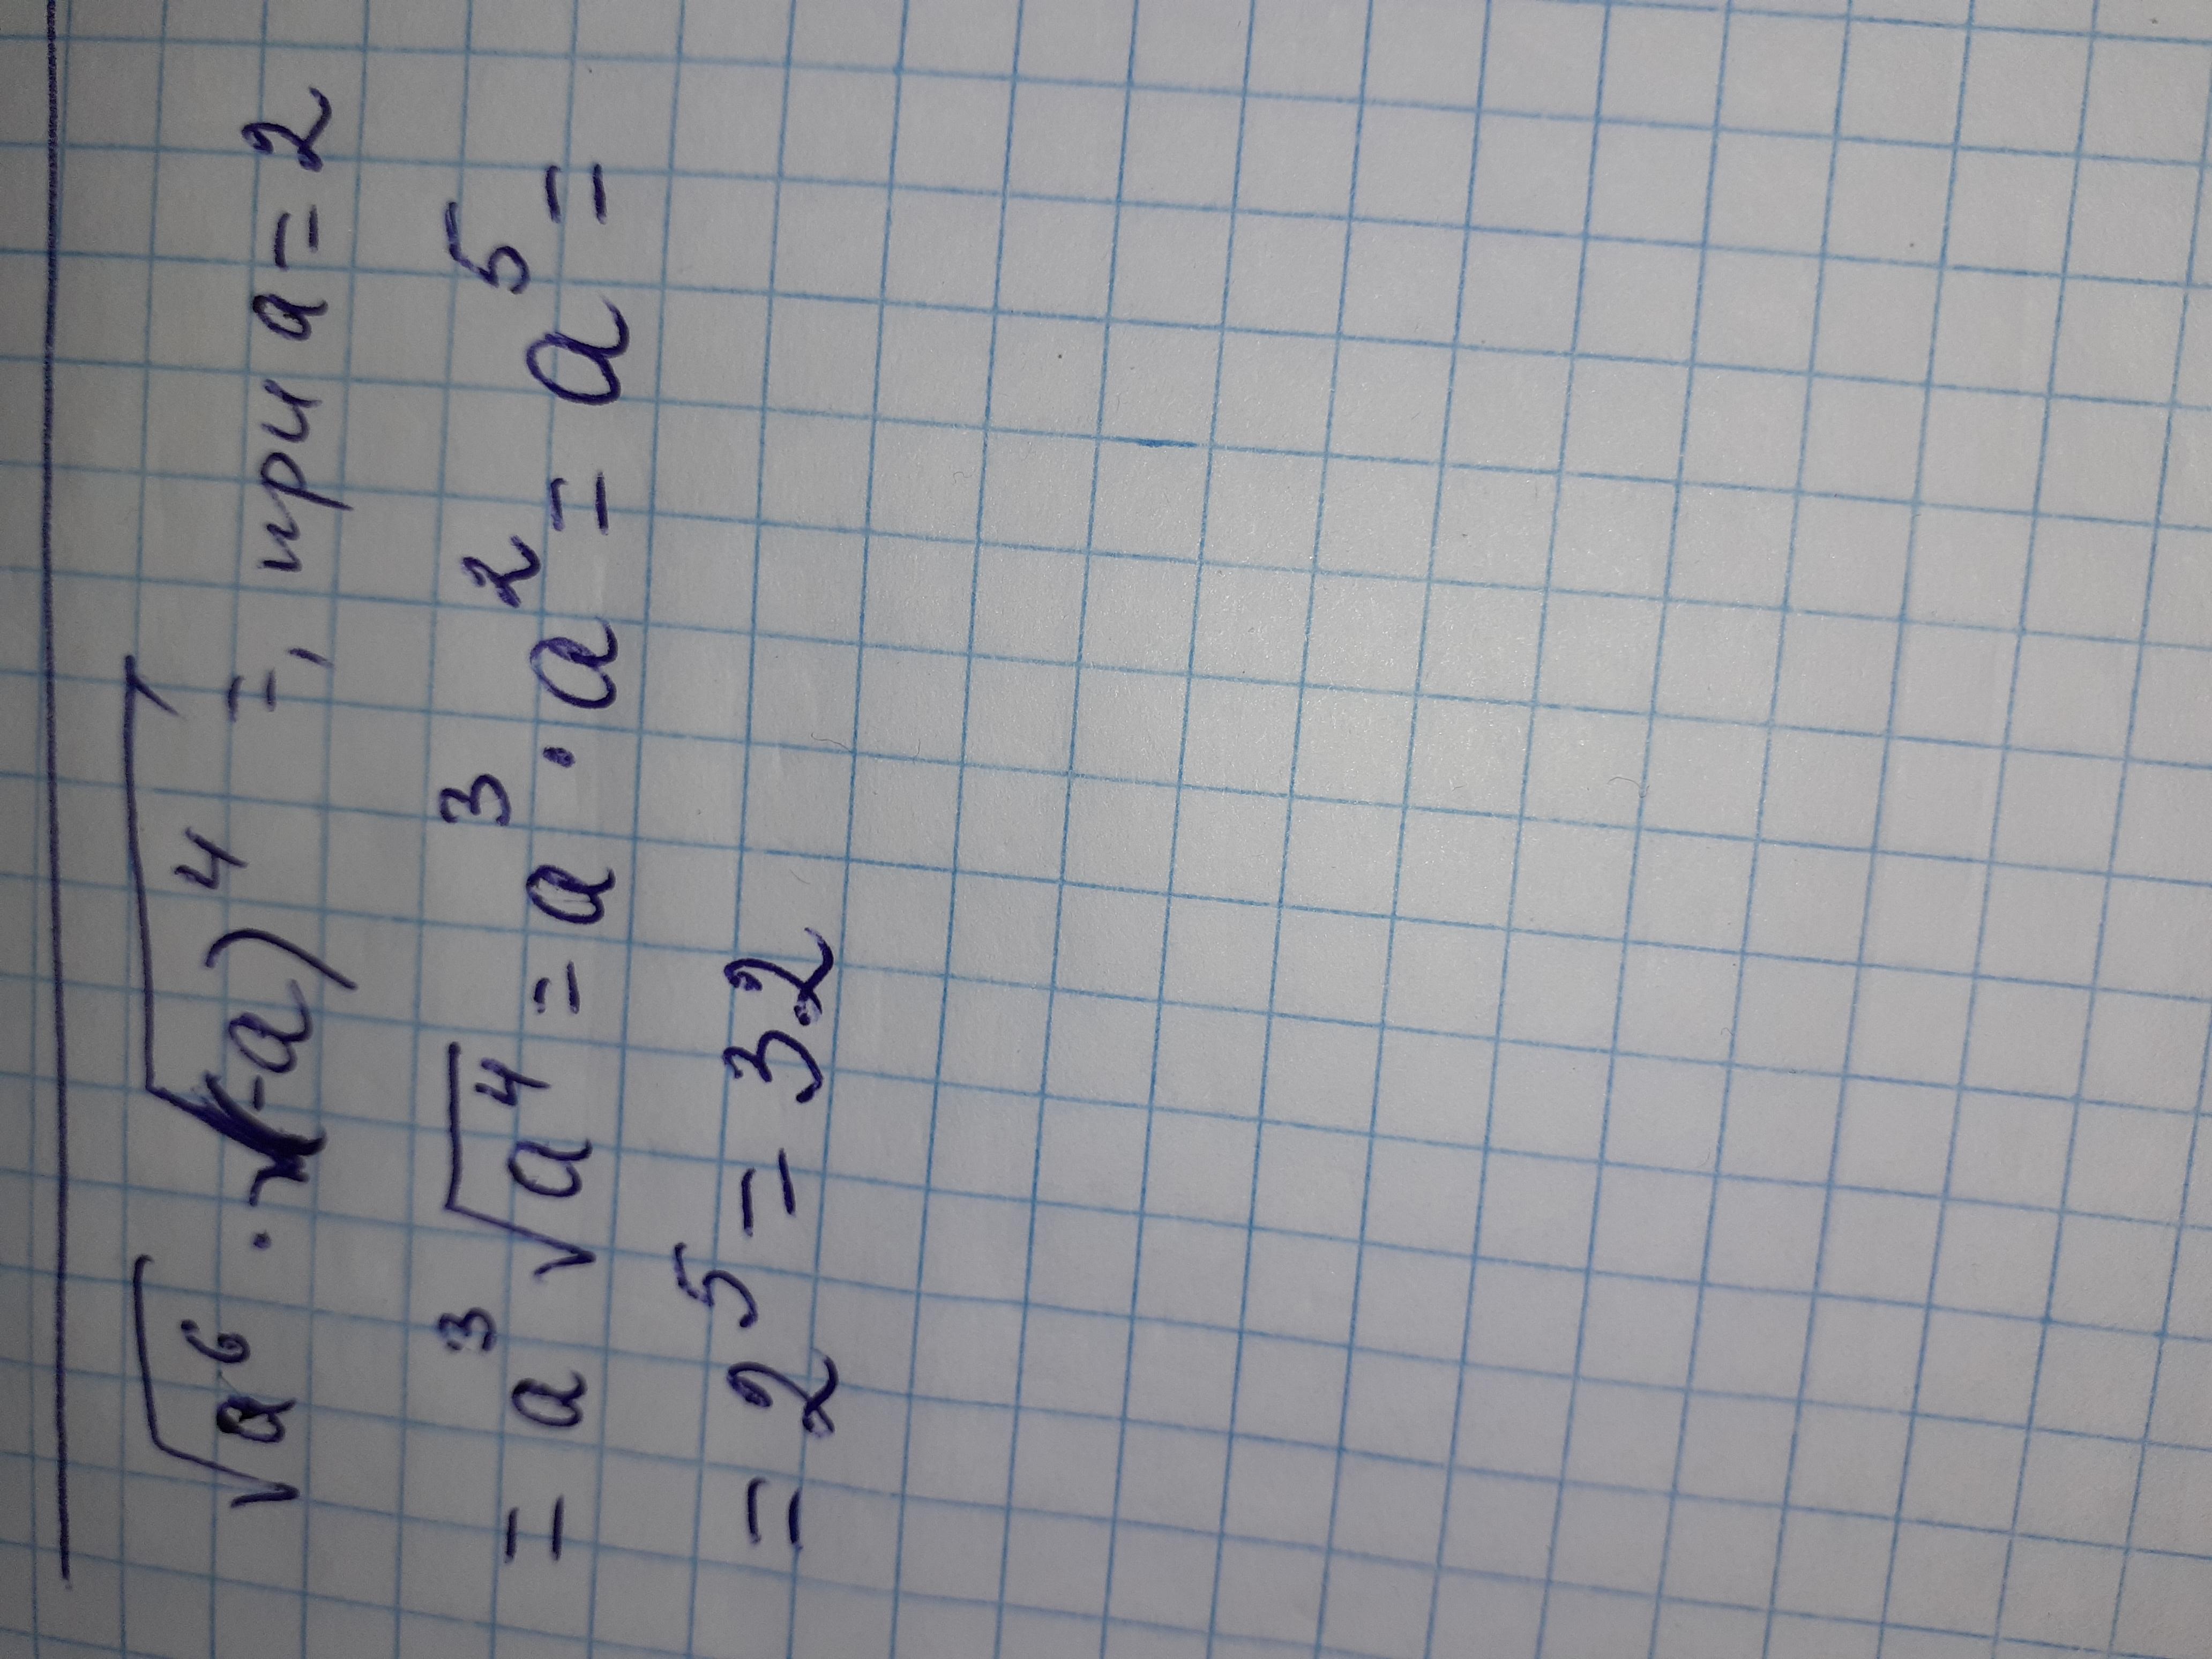 √a⁶ · √(-a)⁴ =, при a = 2
= a³ √a⁴ = a³ · a² = a⁵ =
= 2⁵ = 32